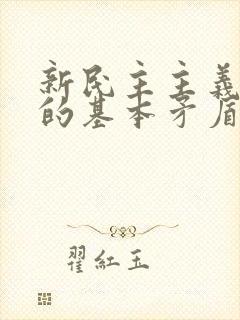 新民主主義
的基本矛盾
翟紅玉